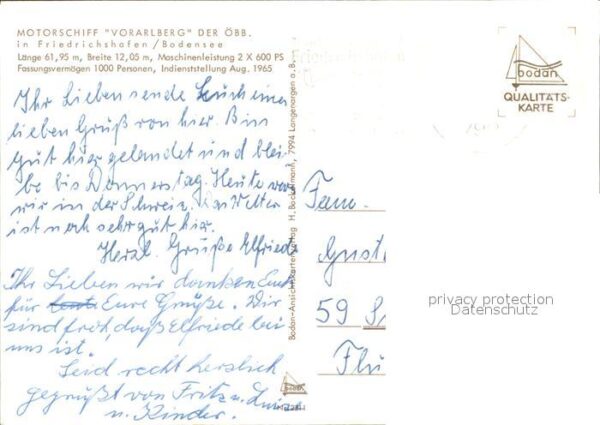 MOTORSCHIFF "VORARLBERG" DER ÖBB.
in Friedrichshafen/Bodensee
Länge 61,95 m, Breite 12,05 m, Maschinenleistung 2 X 600 PS
Fassungsvermögen 1000 Personen, Indienststellung Aug. 1965
Ihr Lieben sende Euch einen
lieben Gruß von hier. Bin
gut hier gelandet und blei-
be bis Donnerstag. Heute
wir in der Schweiz. Das Wetter
ist noch sehr gut hier.
Herzl. Grüße Elfriede
Ihr Lieben wir danken Euch
für Eure Grüße. Wir
sind froh, daß Elfriede bei
uns ist.
Seid recht herzlich
gegrüßt von Fritz u.
u. Kinder.
Bodan-Ansichtskartenverlag H. Bockelmann, 7994 Langenargen a. B.
bodan
QUALITÄTS-
KARTE
Fam.
59
privacy protection
Datenschutz
bodan